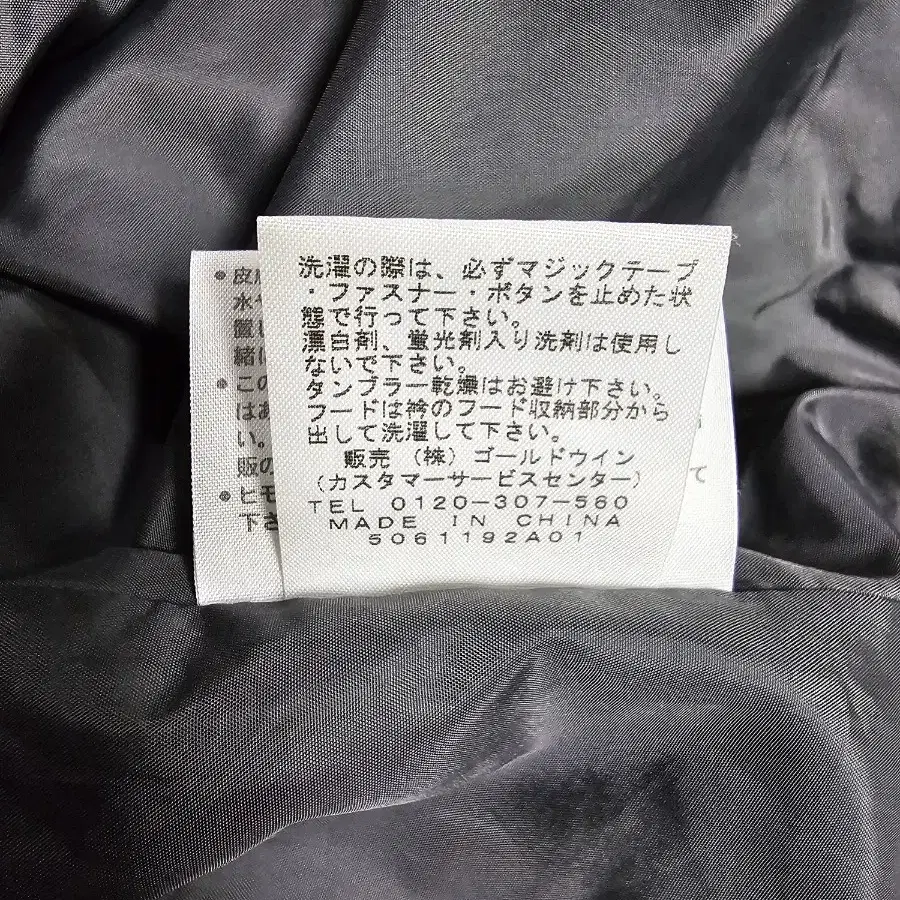 洗濯の際は、必ずマジックテープ
・ファスナー・ボタンを止めた状
態で行って下さい。
漂白剤、蛍光剤入り洗剤は使用し
ないで下さい。
タンブラー乾燥はお避け下さい。
フードは衿のフード収納部分から
出して洗濯して下さい。
販売 (株) ゴールドウイン
(カスタマーサービスセンター)
TEL 0120-307-560
MADE IN CHINA
5061192A01
●皮
水
置
緒
●この
はあ
い。
販の
●ヒモ
下さ
て